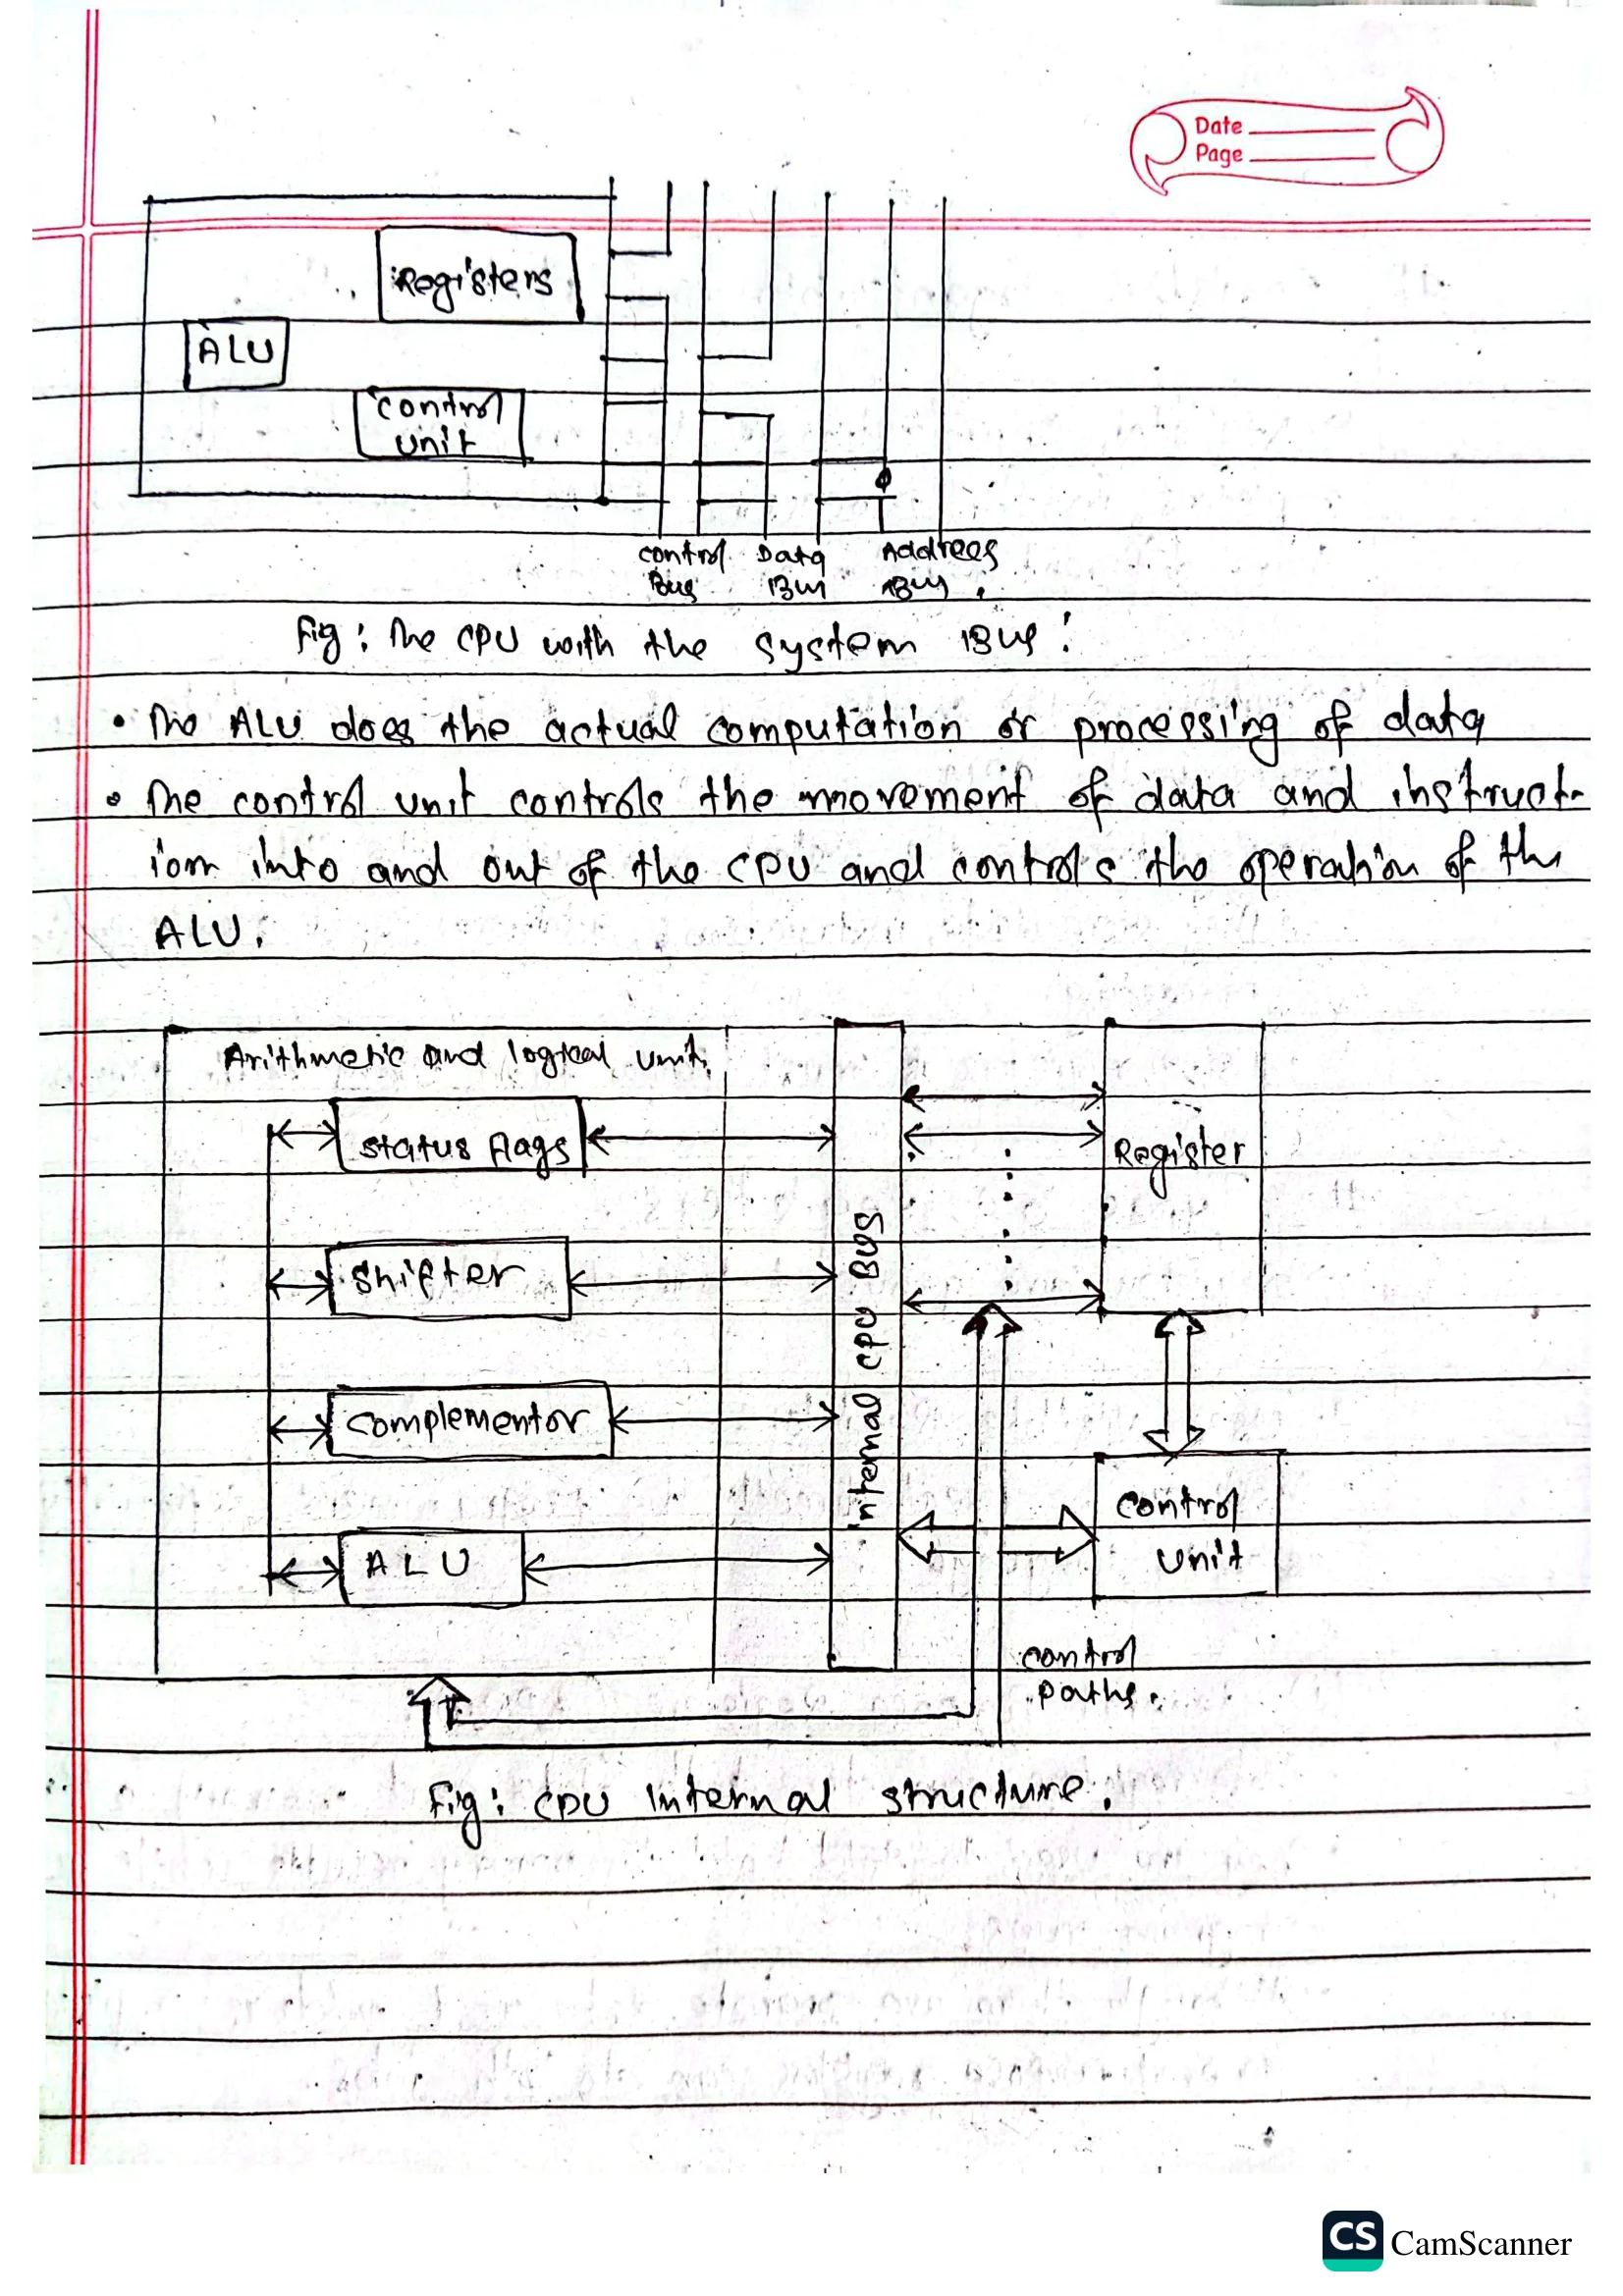 Date
Page
Registers
ALU
control
unit
control Data Address
Bus Bus Bus.
Fig: The CPU with the system Bus:
• The ALU does the actual computation or processing of data
• The control unit controls the movement of data and instruct-
ion into and out of the CPU and controls the operation of the
ALU.
Arithmetic and logical unit.
status flags
Register
shifter
internal CPU BUS
complementor
control
unit
ALU
control
paths.
Fig: CPU internal structure.
CS CamScanner